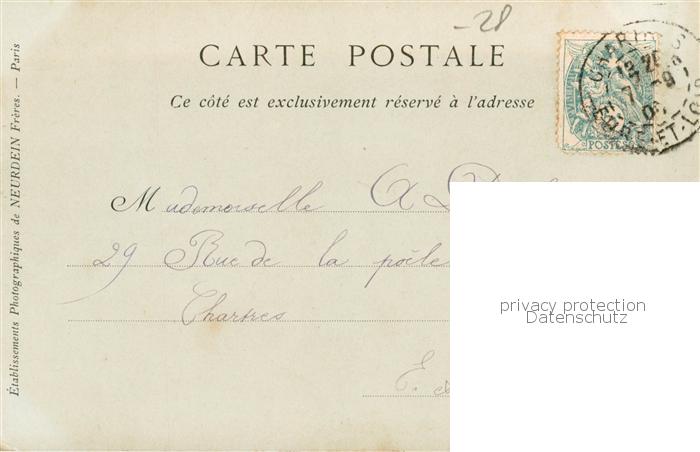 -28
CARTE POSTALE
Ce côté est exclusivement réservé à l'adresse
POSTES
CHARTRES
EURE-ET-LOIR
Établissements Photographiques de NEURDEIN Frères. — Paris
Mademoiselle A
29 Rue de la poêle
Chartres
E.
privacy protection
Datenschutz